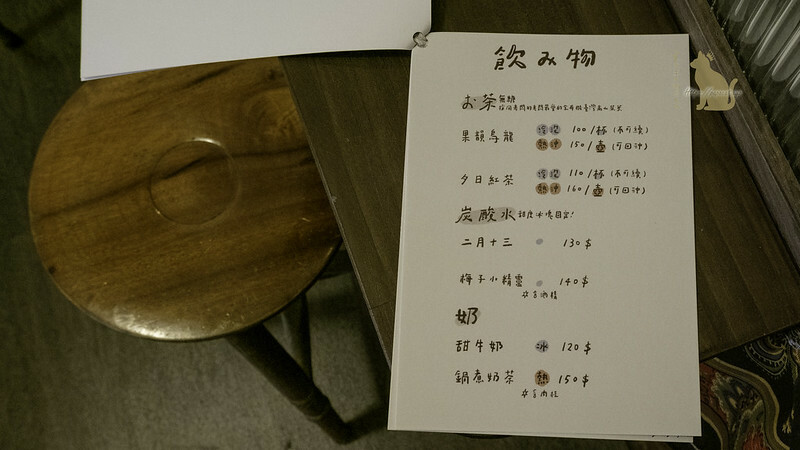 飲み物
お茶 無糖
果韻烏龍 冷泡 100/杯 (不可續)
熱沖 150/壺 (可回沖)
夕日紅茶 冷泡 110/杯 (不可續)
熱沖 160/壺 (可回沖)
炭酸水 甜度冰塊固定!
二月十三 130$
梅子小精靈 140$
含酒精
奶
甜牛奶 冰 120$
鍋煮奶茶 熱 150$
含肉桂